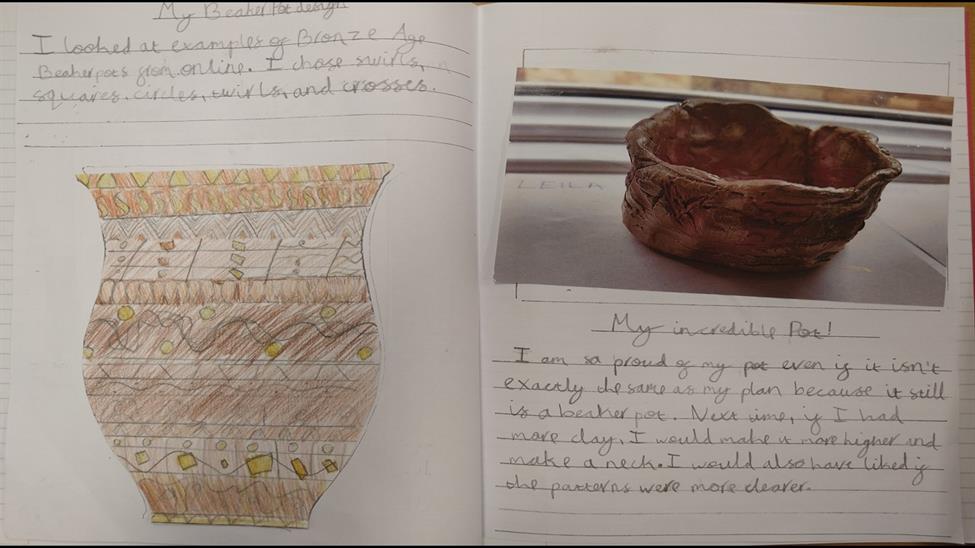 My Beaker Pot design
I looked at examples of Bronze Age
Beaker pots from online. I chose swirls,
squares, circles, twirls, and crosses.
LEILA
My incredible Pot!
I am so proud of my pot even if it isn't
exactly the same as my plan because it still
is a beaker pot. Next time, if I had
more clay, I would make it more higher and
make a neck. I would also have liked if
the patterns were more clearer.